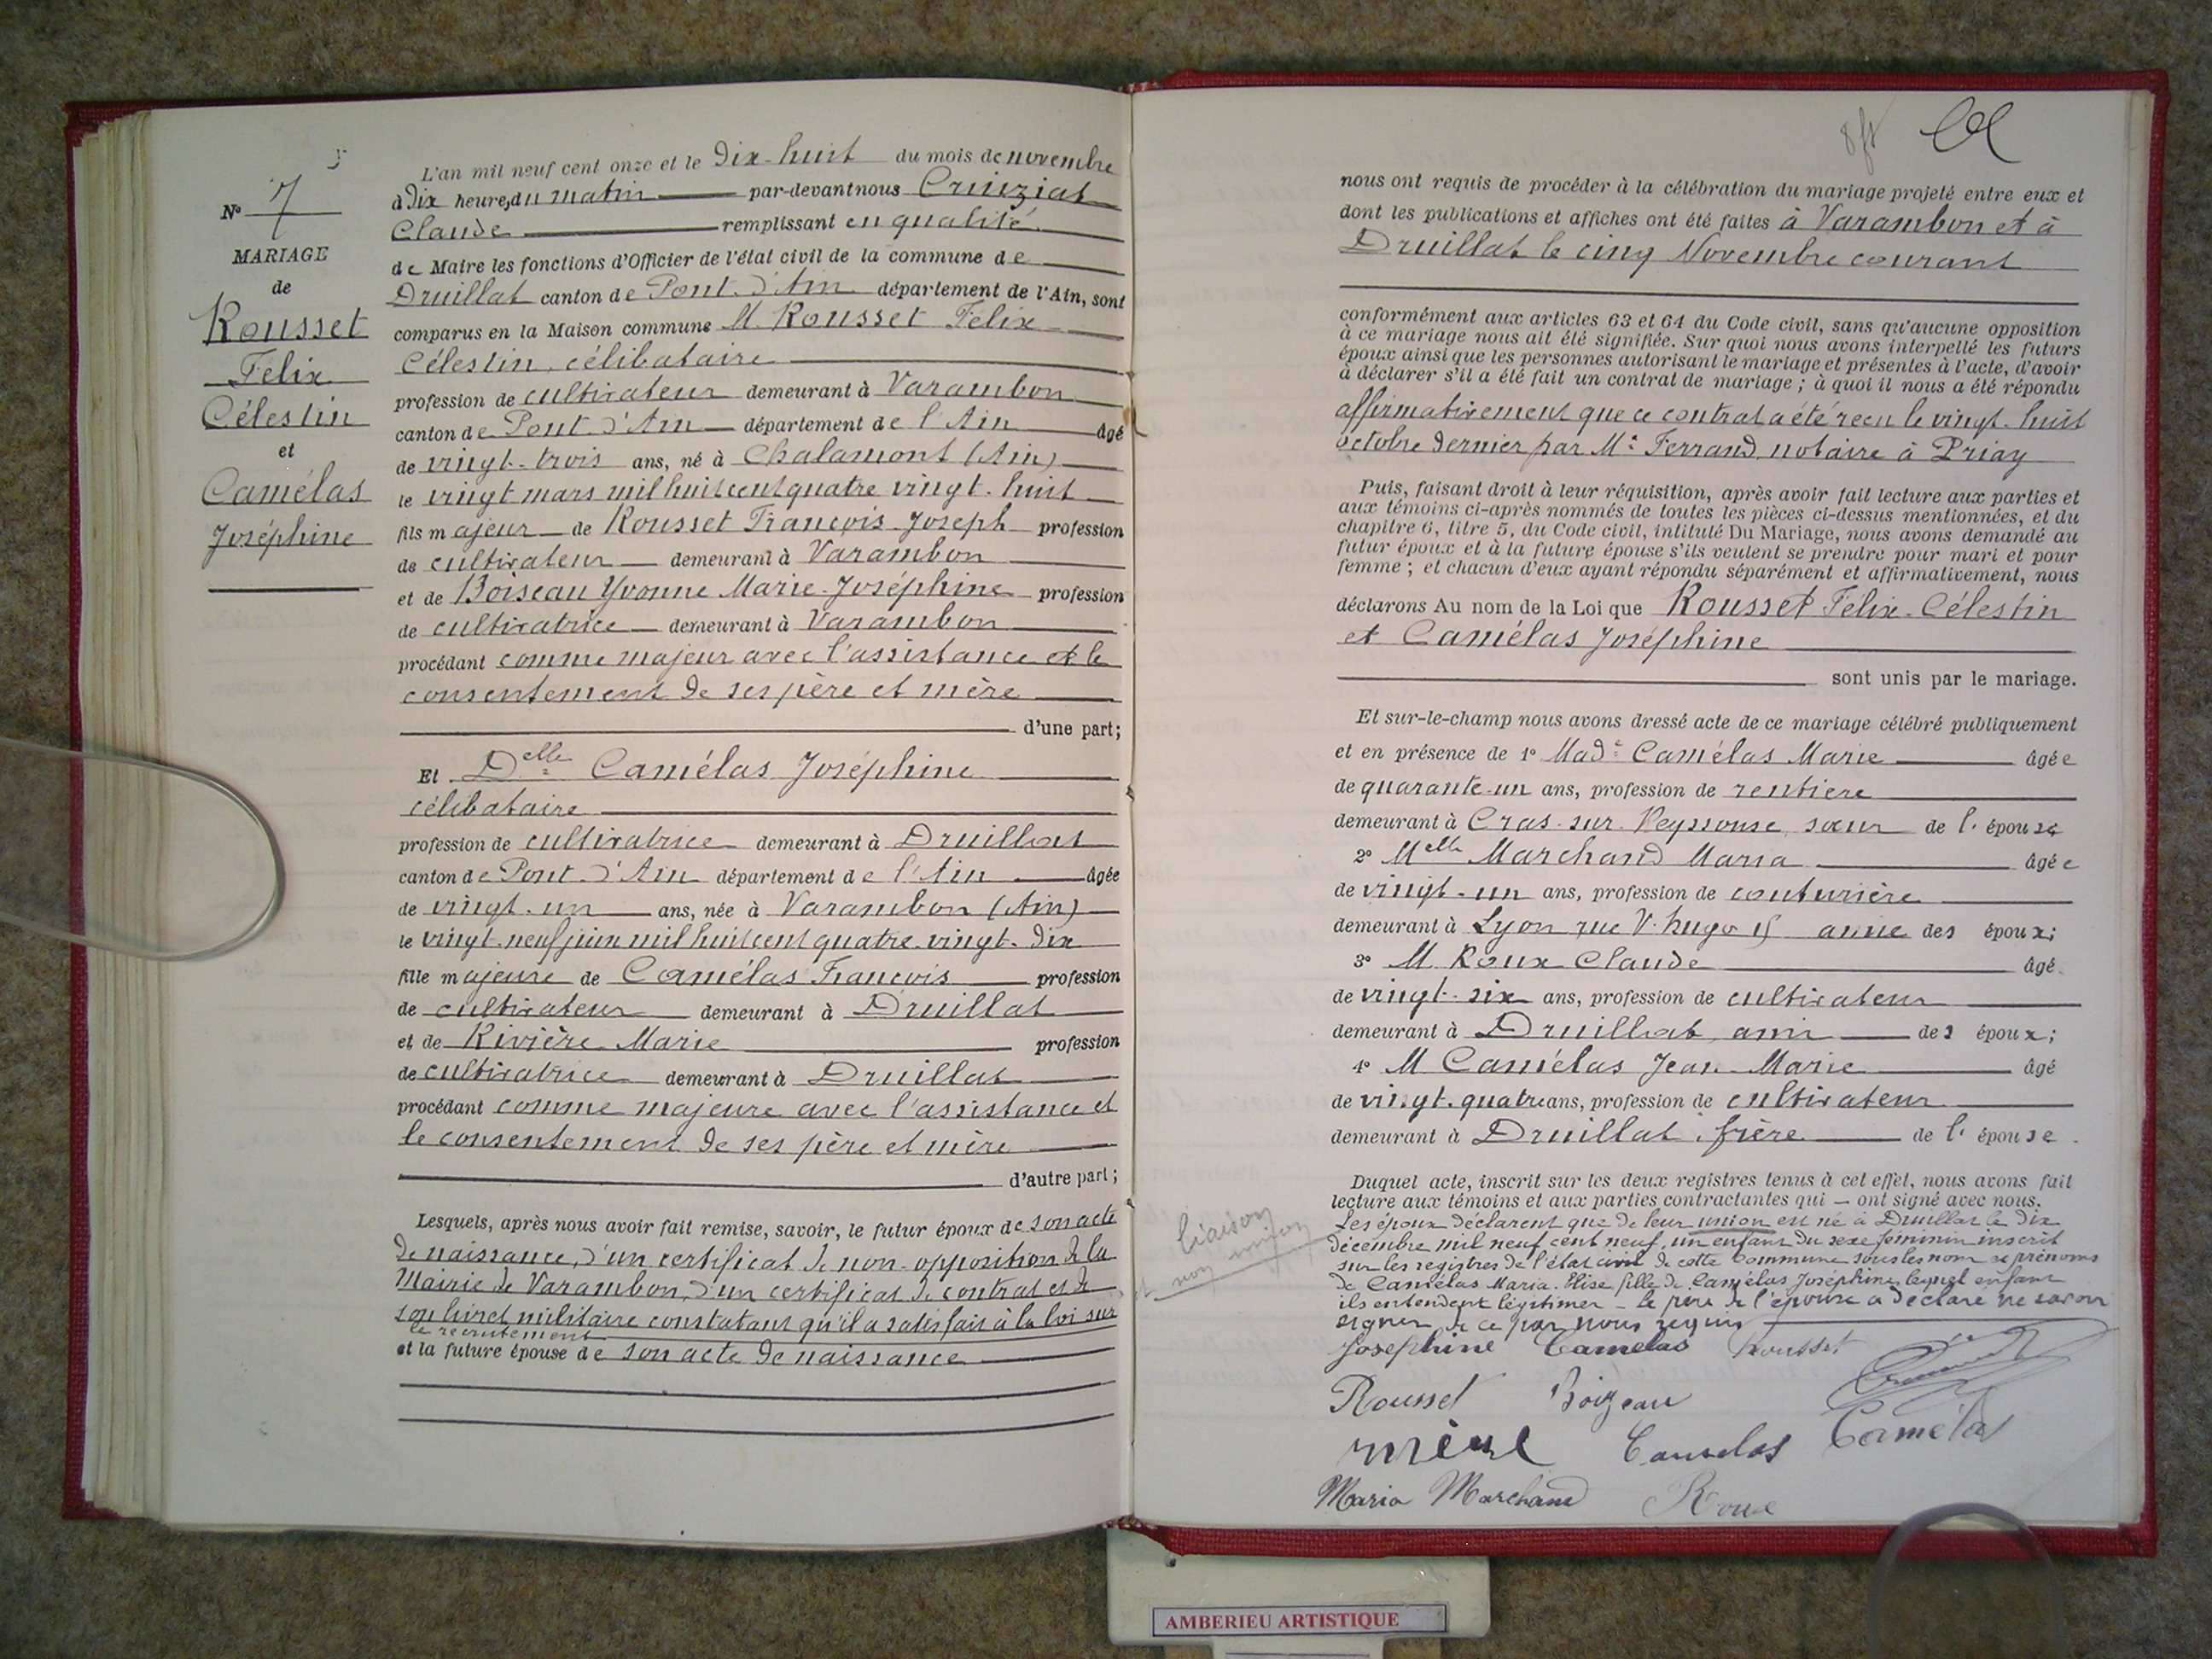 L'an mil neuf cent onze et le Dix-huit du mois de novembre
à Dix heures du matin par-devant nous Cruiziat
Claude remplissant en qualité
de Maire les fonctions d'Officier de l'état civil de la commune de
Druillat canton de Pont-d'Ain département de l'Ain, sont
comparus en la Maison commune M. Rousset Felix
Célestin, célibataire
profession de cultivateur demeurant à Varambon
canton de Pont-d'Ain département de l'Ain âgé
de vingt-trois ans, né à Chalamont (Ain)
le vingt mars mil huit cent quatre vingt-huit
fils majeur de Rousset François-Joseph profession
de cultivateur demeurant à Varambon
et de Boiseau Yvonne Marie-Joséphine profession
de cultivatrice demeurant à Varambon
procédant comme majeur avec l'assistance et le
consentement de ses père et mère
d'une part;
Et Delle Camélas Joséphine
célibataire
profession de cultivatrice demeurant à Druillat
canton de Pont-d'Ain département de l'Ain âgée
de vingt-un ans, née à Varambon (Ain)
le vingt-neuf juin mil huit cent quatre-vingt-dix
fille majeure de Camélas François profession
de cultivateur demeurant à Druillat
et de Rivière Marie profession
de cultivatrice demeurant à Druillat
procédant comme majeure avec l'assistance et
le consentement de ses père et mère
d'autre part;
Lesquels, après nous avoir fait remise, savoir, le futur époux de son acte
de naissance, d'un certificat de non-opposition de la
Mairie de Varambon, d'un certificat de contrat et de
son livret militaire constatant qu'il a satisfait à la loi sur
le recrutement
et la future épouse de son acte de naissance
N° 7
MARIAGE
de
Rousset
Felix
Célestin
et
Camélas
Joséphine
nous ont requis de procéder à la célébration du mariage projeté entre eux et
dont les publications et affiches ont été faites à Varambon et à
Druillat le cinq Novembre courant
conformément aux articles 63 et 64 du Code civil, sans qu'aucune opposition
à ce mariage nous ait été signifiée. Sur quoi nous avons interpellé les futurs
époux ainsi que les personnes autorisant le mariage et présentes à l'acte, d'avoir
à déclarer s'il a été fait un contrat de mariage; à quoi il nous a été répondu
affirmativement que ce contrat a été reçu le vingt-huit
octobre dernier par Me Ferrand notaire à Priay
Puis, faisant droit à leur réquisition, après avoir fait lecture aux parties et
aux témoins ci-après nommés de toutes les pièces ci-dessus mentionnées, et du
chapitre 6, titre 5, du Code civil, intitulé Du Mariage, nous avons demandé au
futur époux et à la future épouse s'ils veulent se prendre pour mari et pour
femme; et chacun d'eux ayant répondu séparément et affirmativement, nous
déclarons Au nom de la Loi que Rousset Felix-Célestin
et Camélas Joséphine
sont unis par le mariage.
Et sur-le-champ nous avons dressé acte de ce mariage célébré publiquement
et en présence de 1° Made Camélas Marie âgée
de quarante-un ans, profession de rentière
demeurant à Cras-sur-Reyssouse, sœur de l'épouse
2° Melle Marchand Maria âgée
de vingt-un ans, profession de couturière
demeurant à Lyon rue V. hugo amie des époux;
3° M. Roux Claude âgé
de vingt-six ans, profession de cultivateur
demeurant à Druillat, ami des époux;
4° M Camélas Jean-Marie âgé
de vingt-quatre ans, profession de cultivateur
demeurant à Druillat, frère de l'épouse
Duquel acte, inscrit sur les deux registres tenus à cet effet, nous avons fait
lecture aux témoins et aux parties contractantes qui — ont signé avec nous.
Les époux déclarent que de leur union est né à Druillat le dix
décembre mil neuf cent neuf, un enfant du sexe féminin inscrit
sur les registres de l'état civil de cette Commune sous les nom et prénoms
de Camélas Maria-Elise fille de Camélas Joséphine, lequel enfant
ils entendent légitimer – Le père de l'épouse a déclaré ne savoir
signer de ce par nous requis
liaison
et non union
Joséphine Camelas Rousset
Rousset Boizeau
mère Camelas Camélas
Maria Marchand Roux
AMBERIEU ARTISTIQUE